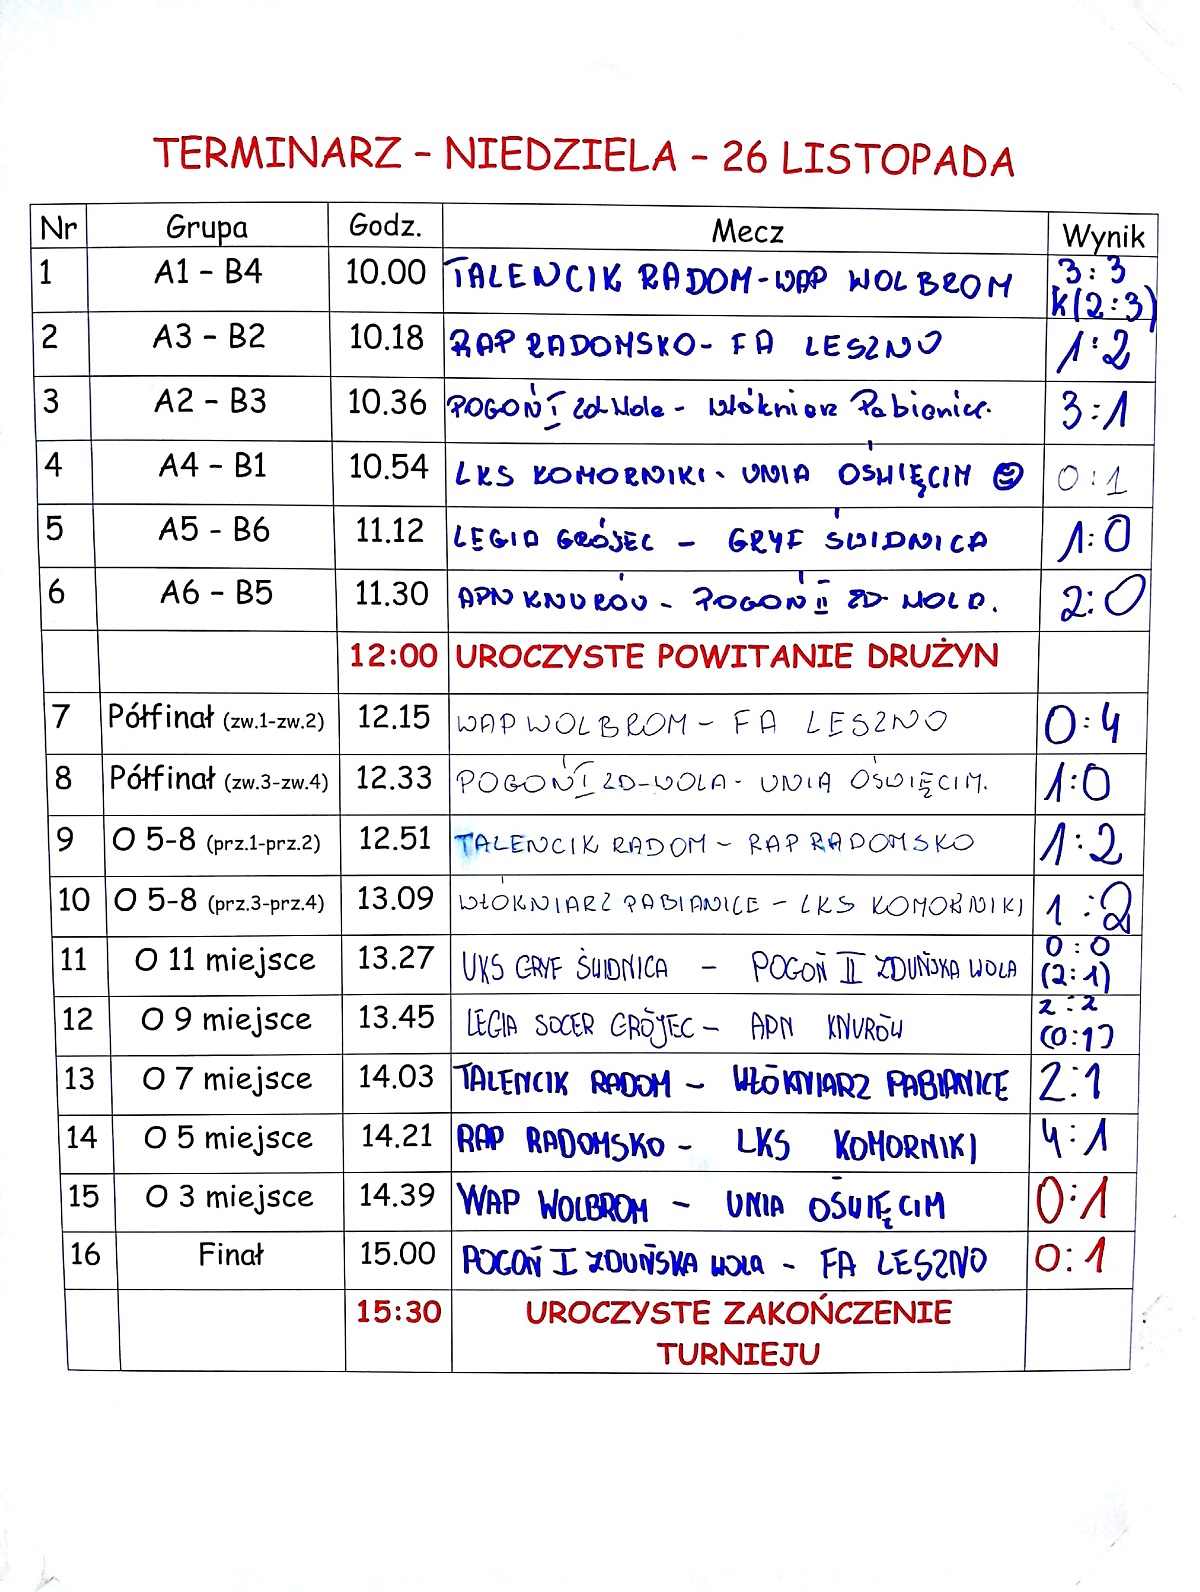 TERMINARZ - NIEDZIELA - 26 LISTOPADA
Nr Grupa Godz. Mecz Wynik
1 A1 - B4 10.00 TALENCIK RADOM - WAP WOLBROM 3:3 K(2:3)
2 A3 - B2 10.18 RAP RADOMSKO - FA LESZNO 1:2
3 A2 - B3 10.36 POGOŃ I Zd Wola - Włókniarz Pabianice. 3:1
4 A4 - B1 10.54 LKS KOMORNIKI - UNIA OŚWIĘCIM 0:1
5 A5 - B6 11.12 LEGIA GRÓJEC - GRYF ŚWIDNICA 1:0
6 A6 - B5 11.30 APN KNURÓW - POGOŃ II ZD WOLA. 2:0
12:00 UROCZYSTE POWITANIE DRUŻYN
7 Półfinał (zw.1-zw.2) 12.15 WAP WOLBROM - FA LESZNO 0:4
8 Półfinał (zw.3-zw.4) 12.33 POGOŃ I ZD-WOLA - UNIA OŚWIĘCIM. 1:0
9 O 5-8 (prz.1-prz.2) 12.51 TALENCIK RADOM - RAP RADOMSKO 1:2
10 O 5-8 (prz.3-prz.4) 13.09 WŁÓKNIARZ PABIANICE - LKS KOMORNIKI 1:2
11 O 11 miejsce 13.27 UKS GRYF ŚWIDNICA - POGOŃ II ZDUŃSKA WOLA 0:0 (2:1)
12 O 9 miejsce 13.45 LEGIA SOCER GRÓJEC - APN KNURÓW 2:2 (0:1)
13 O 7 miejsce 14.03 TALENCIK RADOM - WŁÓKNIARZ PABIANICE 2:1
14 O 5 miejsce 14.21 RAP RADOMSKO - LKS KOMORNIKI 4:1
15 O 3 miejsce 14.39 WAP WOLBROM - UNIA OŚWIĘCIM 0:1
16 Finał 15.00 POGOŃ I ZDUŃSKA WOLA - FA LESZNO 0:1
15:30 UROCZYSTE ZAKOŃCZENIE
TURNIEJU